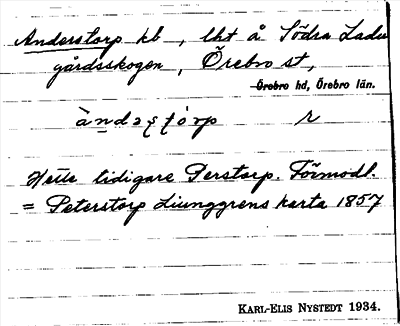 Anderstorp kb, lht å Södra Ladu
gårdsskogen, Örebro st,
Örebro hd, Örebro län.
r
Hette tidigare Perstorp. Förmodl.
= Peterstorp Liunggrens karta 1857
KARL-ELIS NYSTEDT 1934.